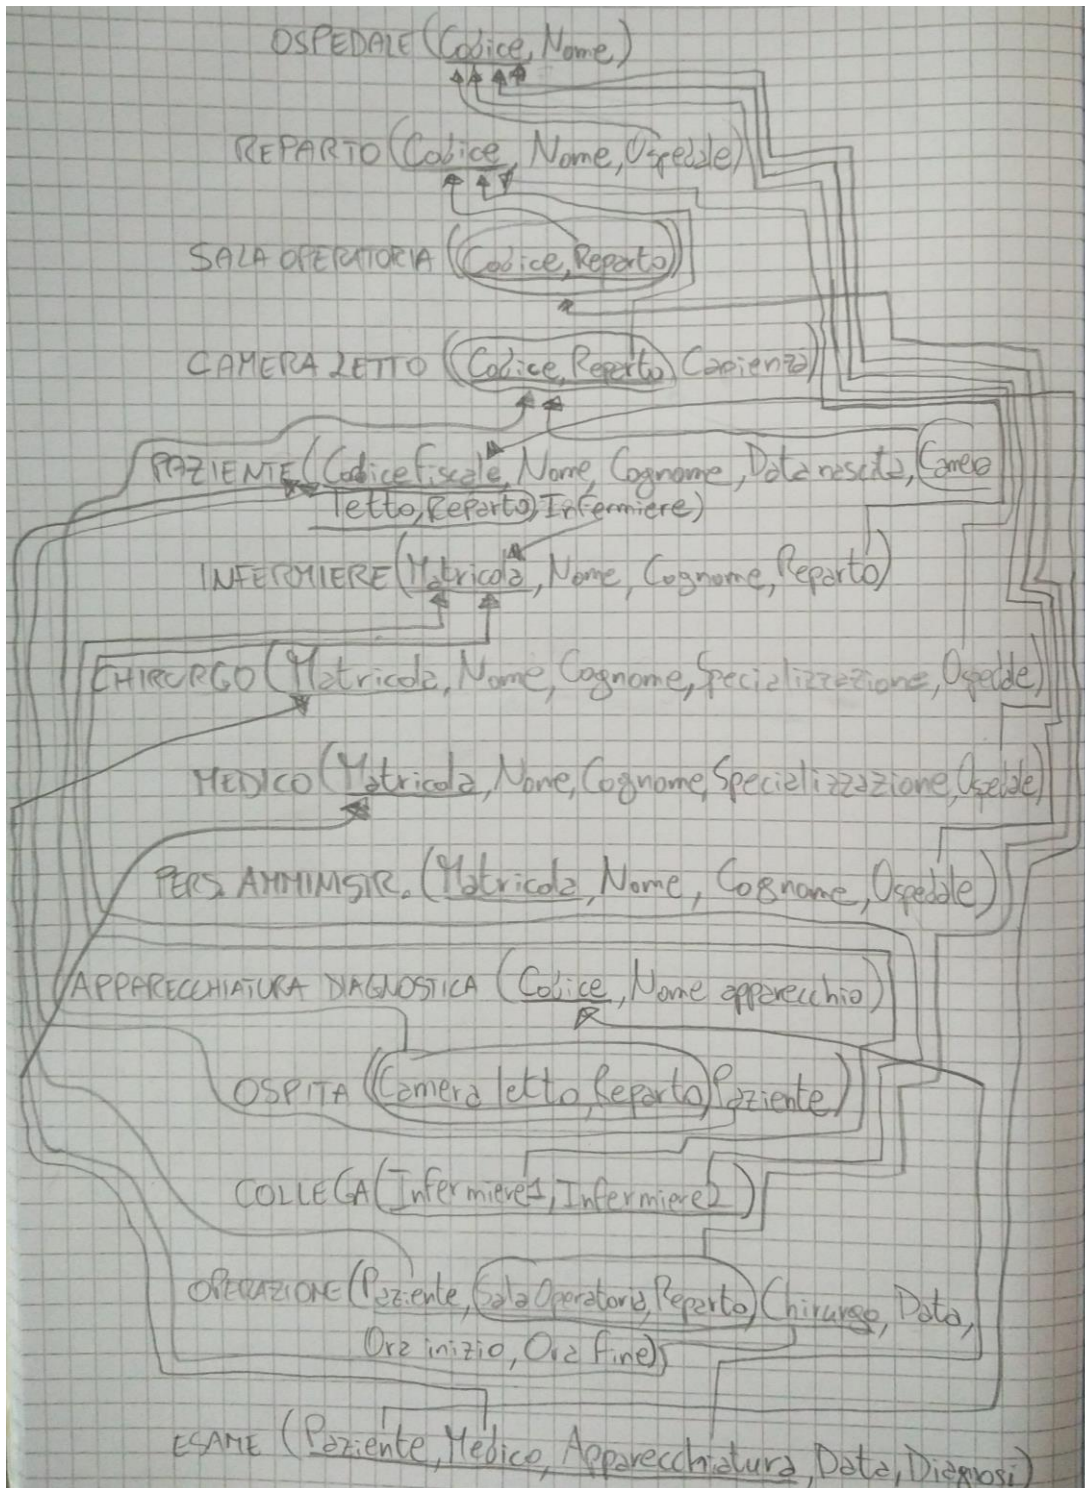 OSPEDALE (Codice, Nome)
REPARTO (Codice, Nome, Ospedale)
SALA OPERATORIA (Codice, Reparto)
CAMERA LETTO (Codice, Reparto, Capienza)
PAZIENTE (Codice fiscale, Nome, Cognome, Data nascita, Camera
letto, Reparto, Infermiere)
INFERMIERE (Matricola, Nome, Cognome, Reparto)
CHIRURGO (Matricola, Nome, Cognome, Specializzazione, Ospedale)
MEDICO (Matricola, Nome, Cognome, Specializzazione, Ospedale)
PERS. AMMINISTR. (Matricola, Nome, Cognome, Ospedale)
APPARECCHIATURA DIAGNOSTICA (Codice, Nome apparecchio)
OSPITA (Camera letto, Reparto, Paziente)
COLLEGA (Infermiere1, Infermiere2)
OPERAZIONE (Paziente, Sala Operatoria, Reparto, Chirurgo, Data,
Ora inizio, Ora fine)
ESAME (Paziente, Medico, Apparecchiatura, Data, Diagnosi)